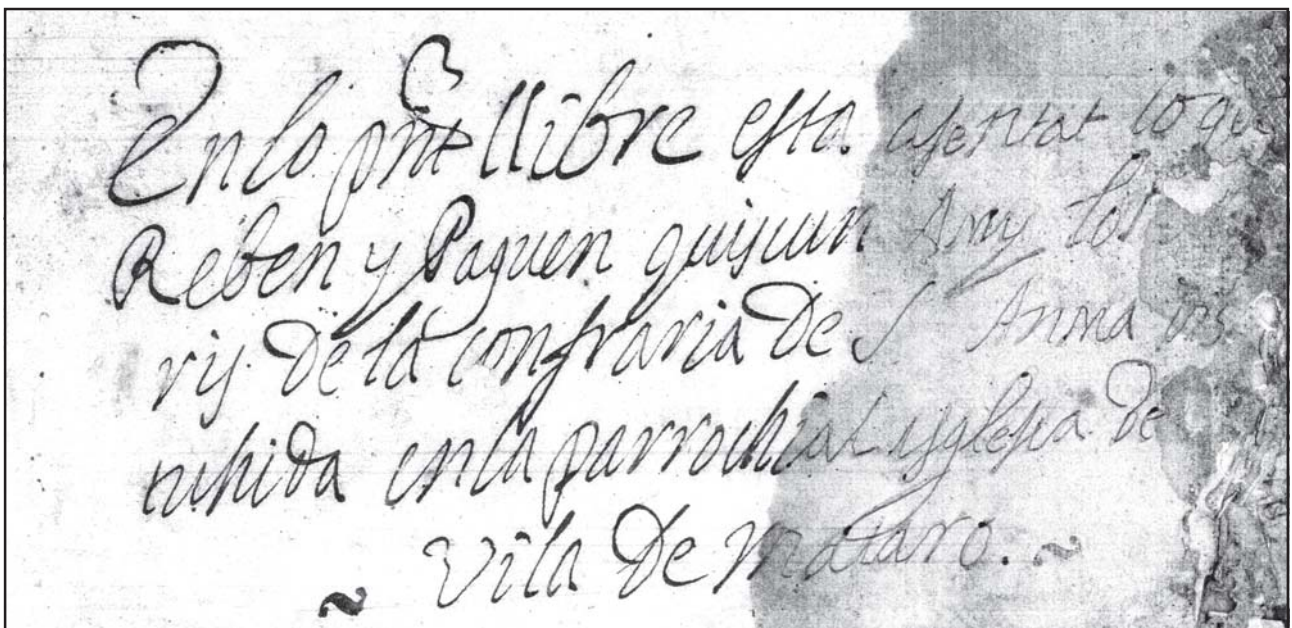 En lo pnt llibre esta asentat lo que
Reben y Paguen quiscun Any los
ris de la confraria de S Anna ins
tuhida en la parrochial yglesia de
Vila de mataro.